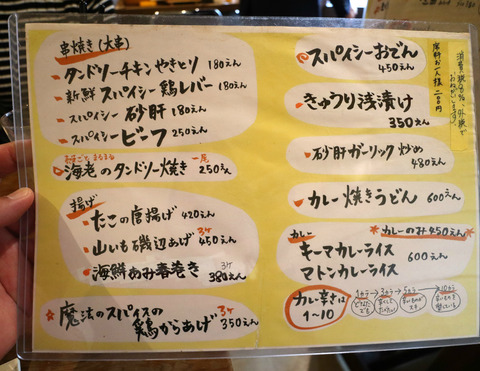 串焼き(大串)
タンドリーチキンやきとり 180えん
新鮮スパイシー鶏レバー 180えん
スパイシー砂肝 180えん
スパイシービーフ 250えん
頭まごと まるまる
海老のタンドリー焼き 一尾 250えん
揚げ
たこの唐揚げ 420えん
山いも磯辺あげ 3ヶ 450えん
海鮮あみ春巻き 3ヶ 380えん
魔法のスパイスの
鶏からあげ 3ヶ 350えん
スパイシーおでん
450えん
きゅうり浅漬け
350えん
砂肝ガーリック炒め
480えん
カレー焼きうどん 600えん
カレー
カレーのみ450えん
キーマカレーライス
マトンカレーライス
600えん
カレー辛さは
1〜10
1から→3から→5から→10から
席料お一人様二百円
消費税8%、外税で
おねがいします。